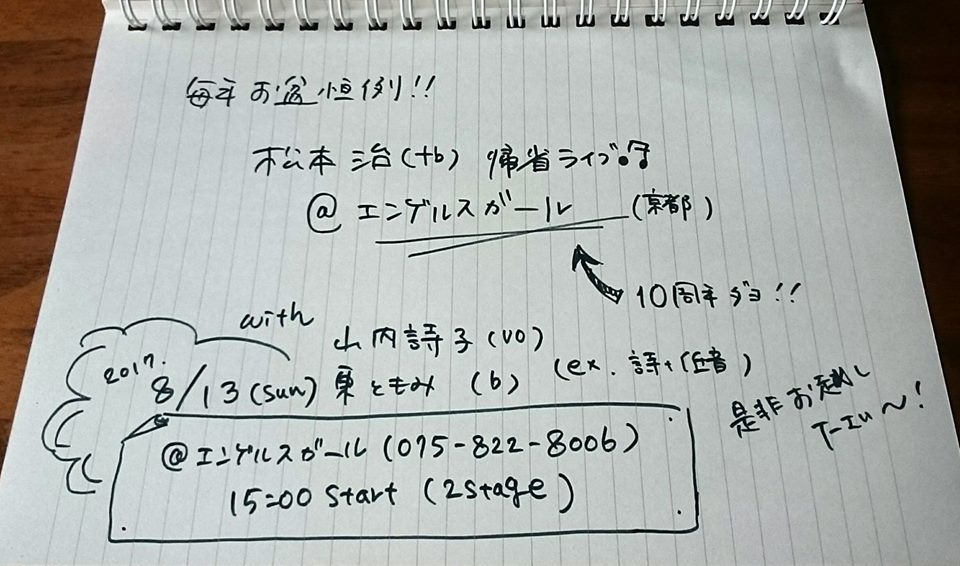 毎年お盆恒例!!
松本治(tb) 帰省ライブ♪
@ エンゲルスガール (京都)
10周年ダヨ!!
with
山内詩子(vo)
2017.
8/13(sun)
東ともみ (b) (ex. 詩+低音)
是非お越し
下さい〜!
@エンゲルスガール (075-822-8006)
15:00 start (2stage)